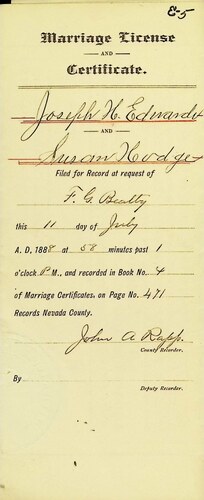 E-5
Marriage License
AND
Certificate.
Joseph H. Edwards
AND
Susan Hodges
Filed for Record at request of
F. G. Beatty
this 11 day of July
A. D. 1888 at 58 minutes past 1
o'clock P M., and recorded in Book No. 4
of Marriage Certificates, on Page No. 471
Records Nevada County.
John A Rapp.
County Recorder.
By
Deputy Recorder.